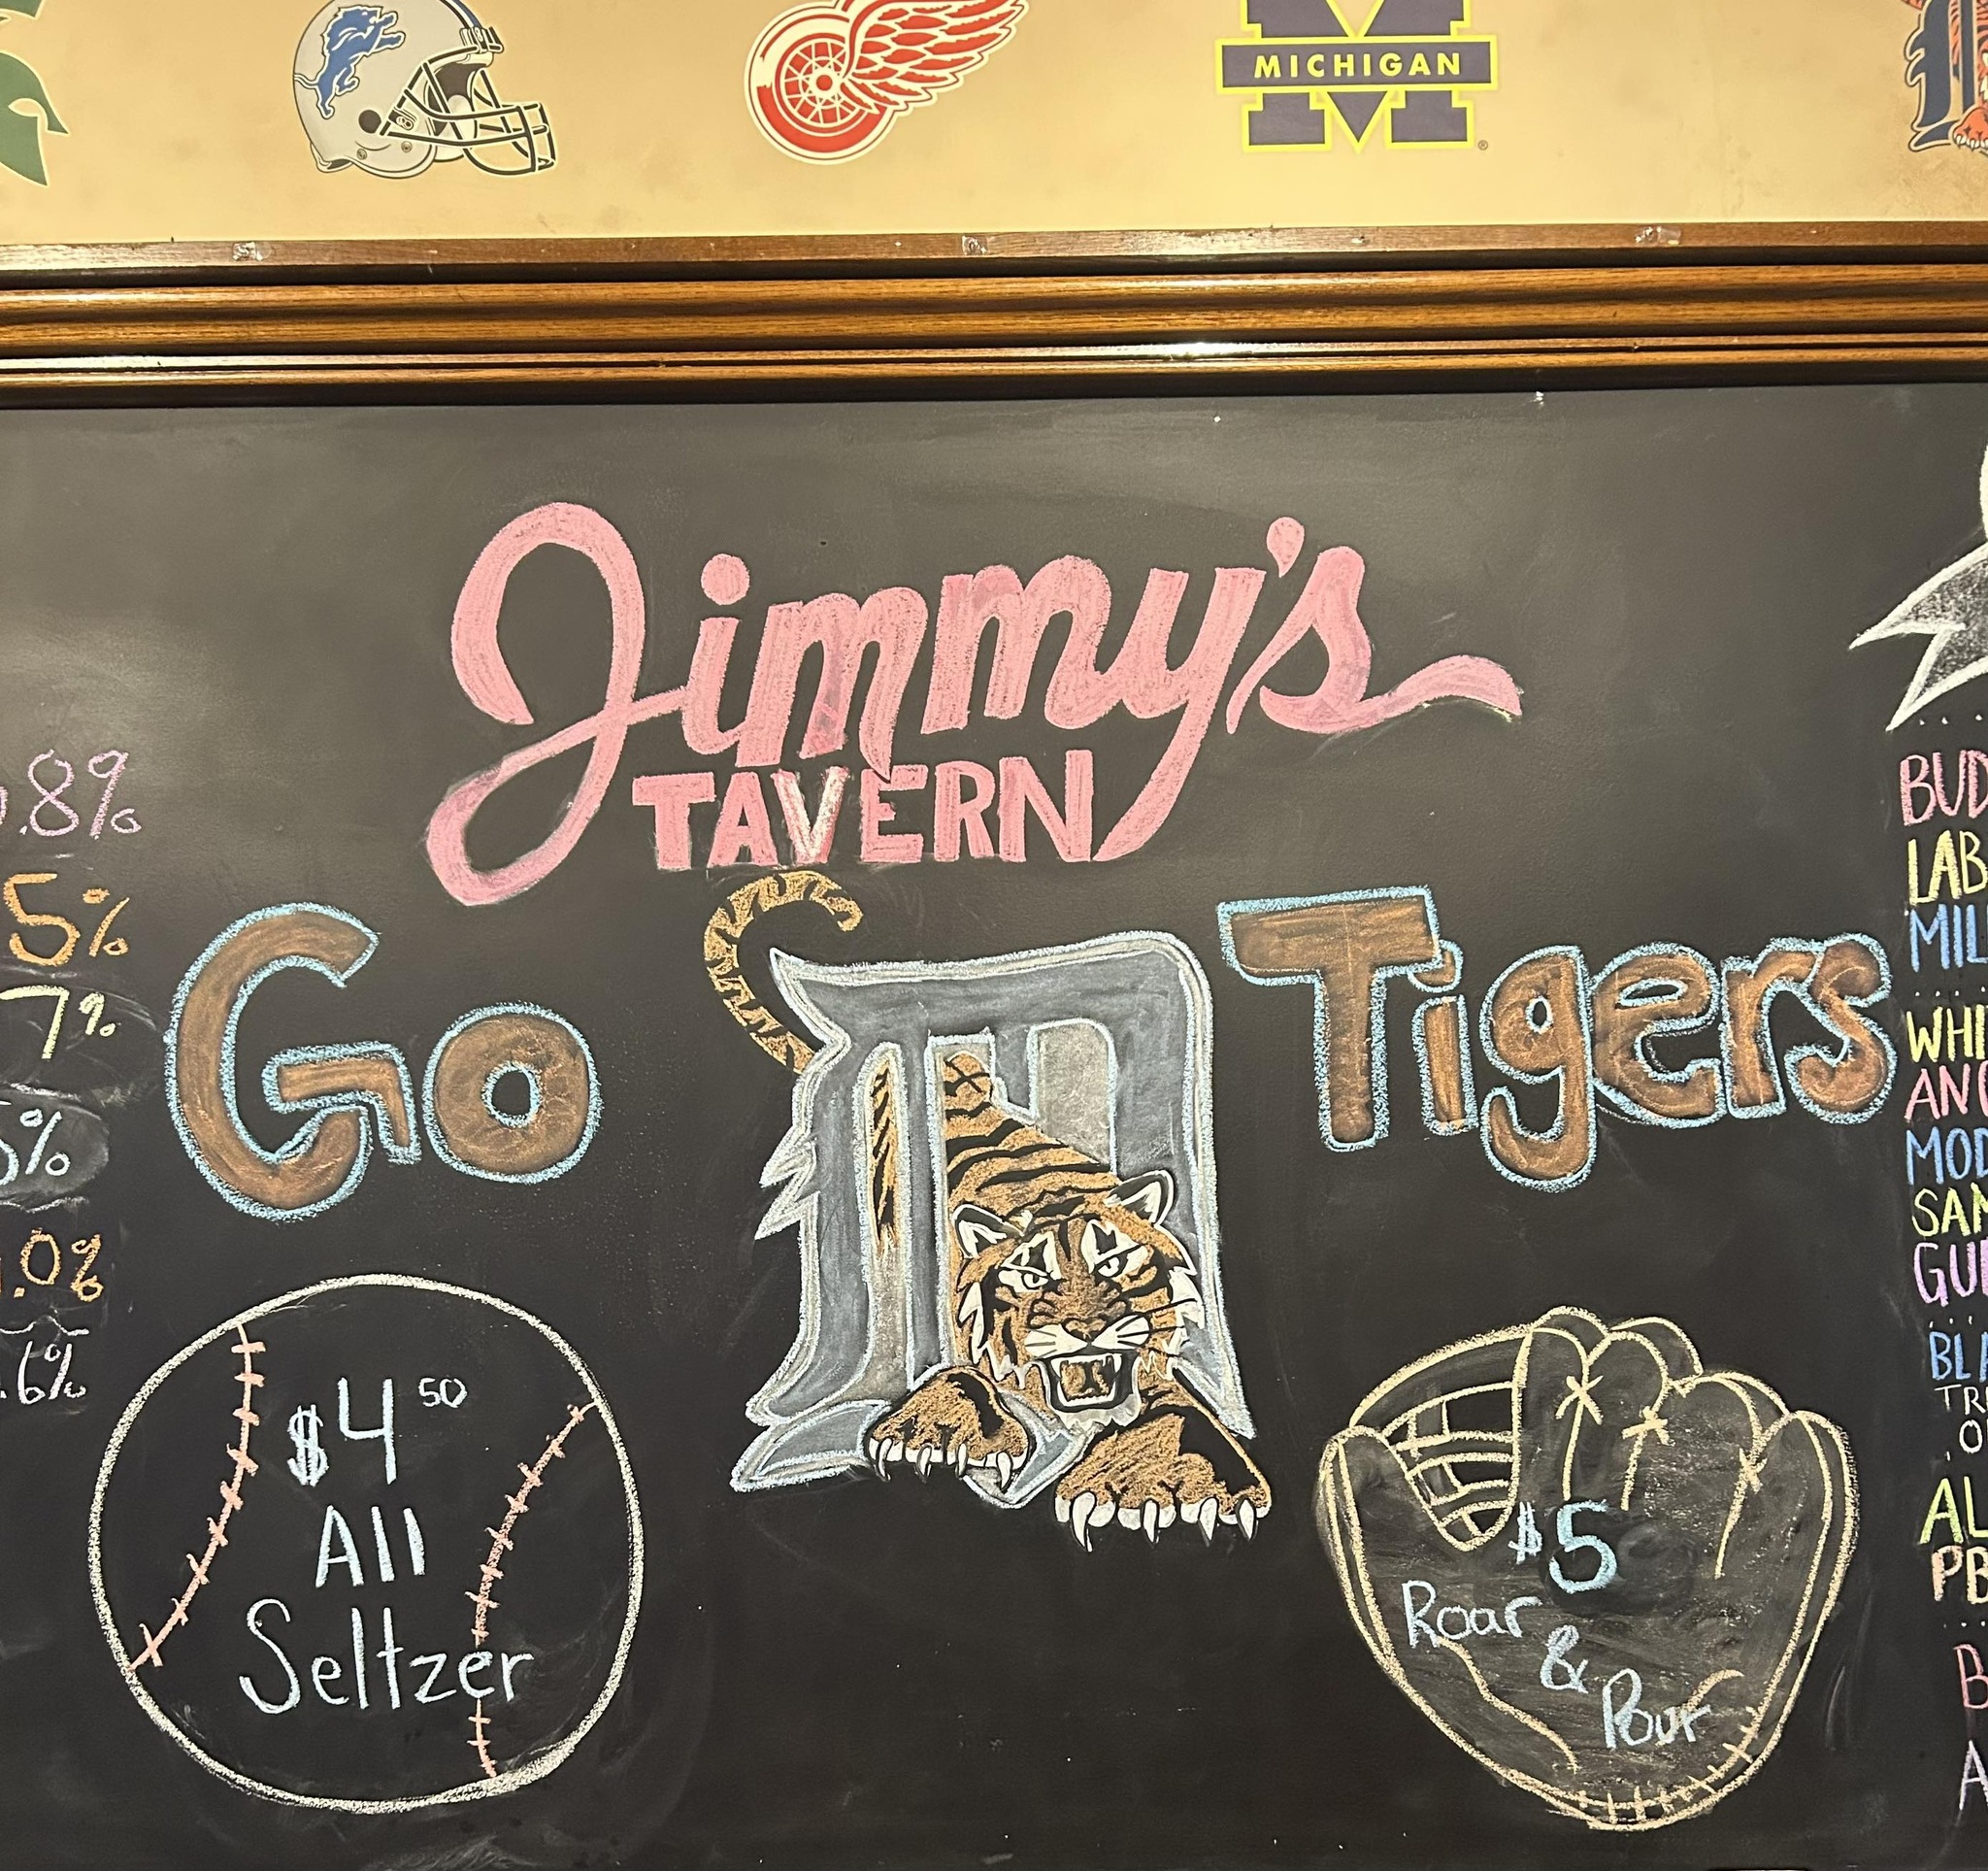 MICHIGAN
Jimmy's
TAVERN
Go
D
Tigers
.8%
5%
7%
5%
.0%
.6%
$4 50
All
Seltzer
$5
Roar
&
Pour
BUD
LAB
MIL
WHI
MOD
SAM
BLA
TR
O
AL
PB
B
A